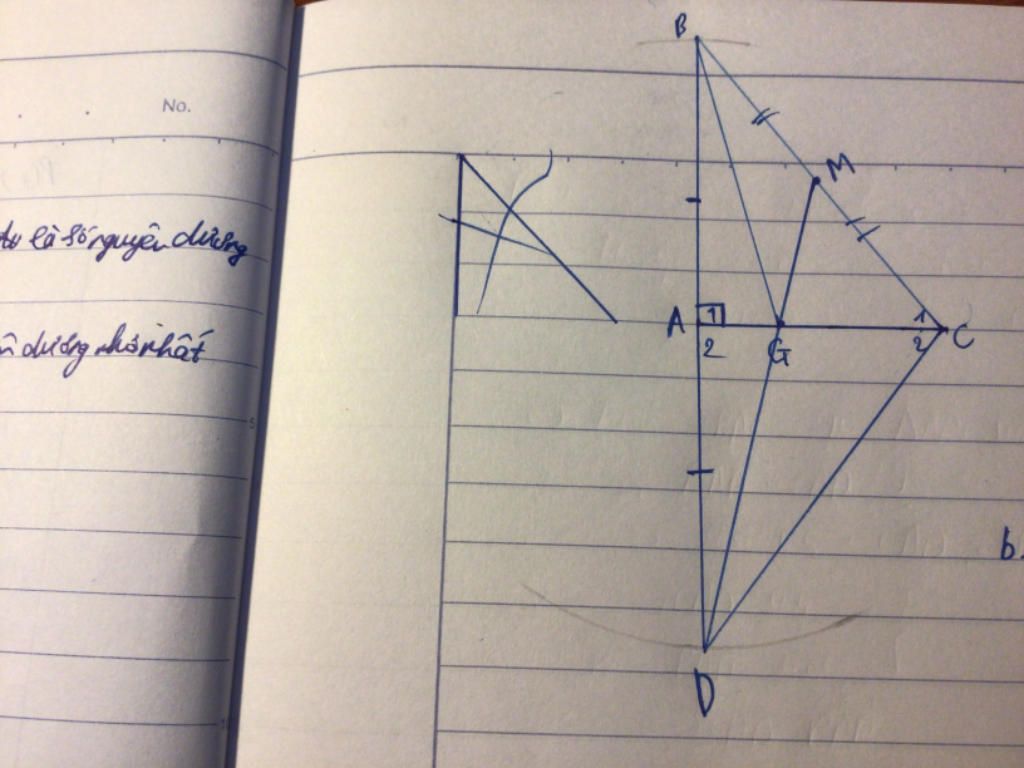 No.
là số nguyên dương
dương nhỏ nhất
5
B
M
A 1 1 C
2 G 2
D
b.